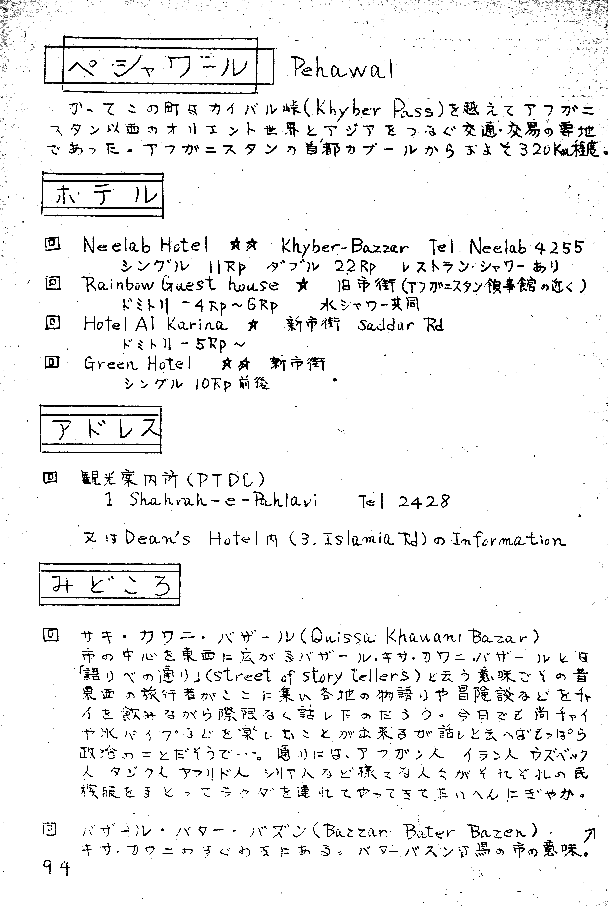 ペシャワール Pehawal
かってこの町はカイバル峠(Khyber Pass)を越えてアフガニ
スタン以西のオリエント世界とアジアをつなぐ交通・交易の要地
であった。アフガニスタンの首都カブールからおよそ320Km程度。
ホテル
回 Neelab Hotel ☆☆ Khyber-Bazzar Tel Neelab 4255
シングル 11Rp ダブル 22Rp レストラン・シャワーあり
回 Rainbow Guest house ☆ 旧市街(アフガニスタン領事館の近く)
ドミトリー4Rp～6Rp 水シャワー共同
回 Hotel Al Karina ☆ 新市街 Saddur Rd
ドミトリー5Rp～
回 Green Hotel ☆☆ 新市街
シングル 10Rp前後
アドレス
回 観光案内所(PTDC)
1 Shahrah-e-Pahlavi Tel 2428
又は Dean's Hotel内(3. Islamia Rd)の Information
みどころ
回 サキ・カワニ・バザール(Quissa Khawani Bazar)
市の中心を東西に広がるバザール・キサ・カワニ・バザールとは
「語りべの通り」(street of story tellers)と云う意味でその昔
東西の旅行者がここに集い各地の物語りや冒険談などをチャ
イを飲みながら際限なく話し下のだろう。今日でも尚チャイ
や水パイプなどを楽しむことが出来るが話しと云へばもっぱら
政治のことだそうで…。通りには、アフガン人 イラン人 ウズベック
人 タジク人 アフリド人 シリア人など様々な人々がそれぞれの民
族服をまとってラクダを連れてやってきてたいへんにぎやか。
回 バザール・バター・バズン(Bazzan Bater Bazen)・
キサ・カワニのすぐわきにある。バターバズンは馬の市の意味。
94